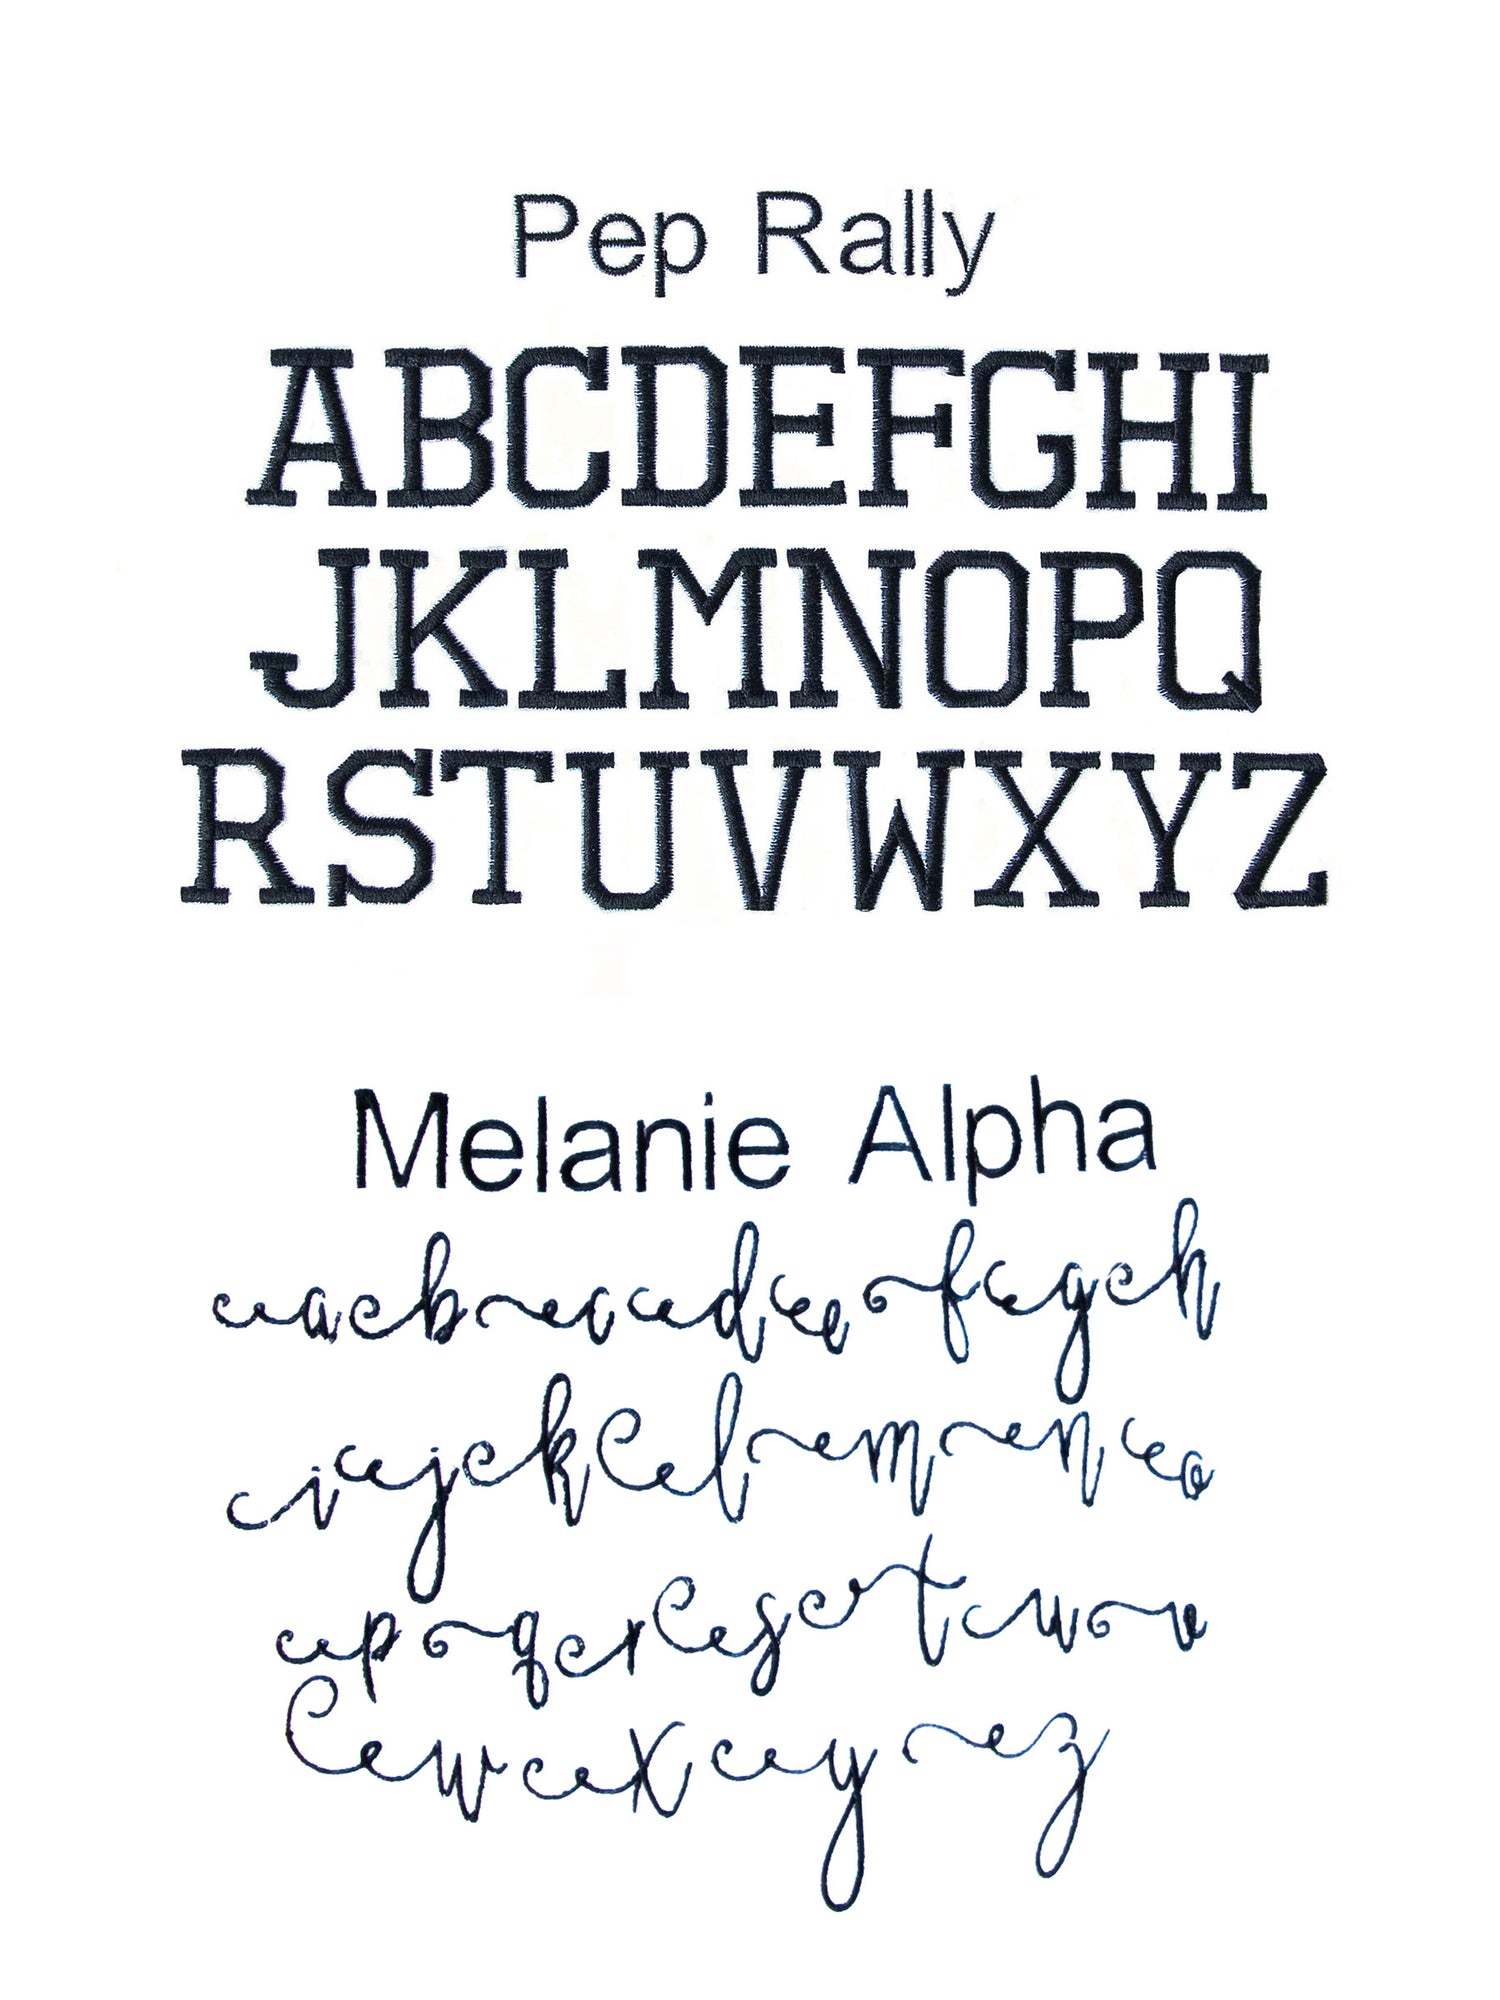 Pep Rally
ABCDEFGHI
JKLMNOPQ
RSTUVWXYZ
Melanie Alpha
a b c d e f g h
i j k l m n o
p q r s t u v
w x y z